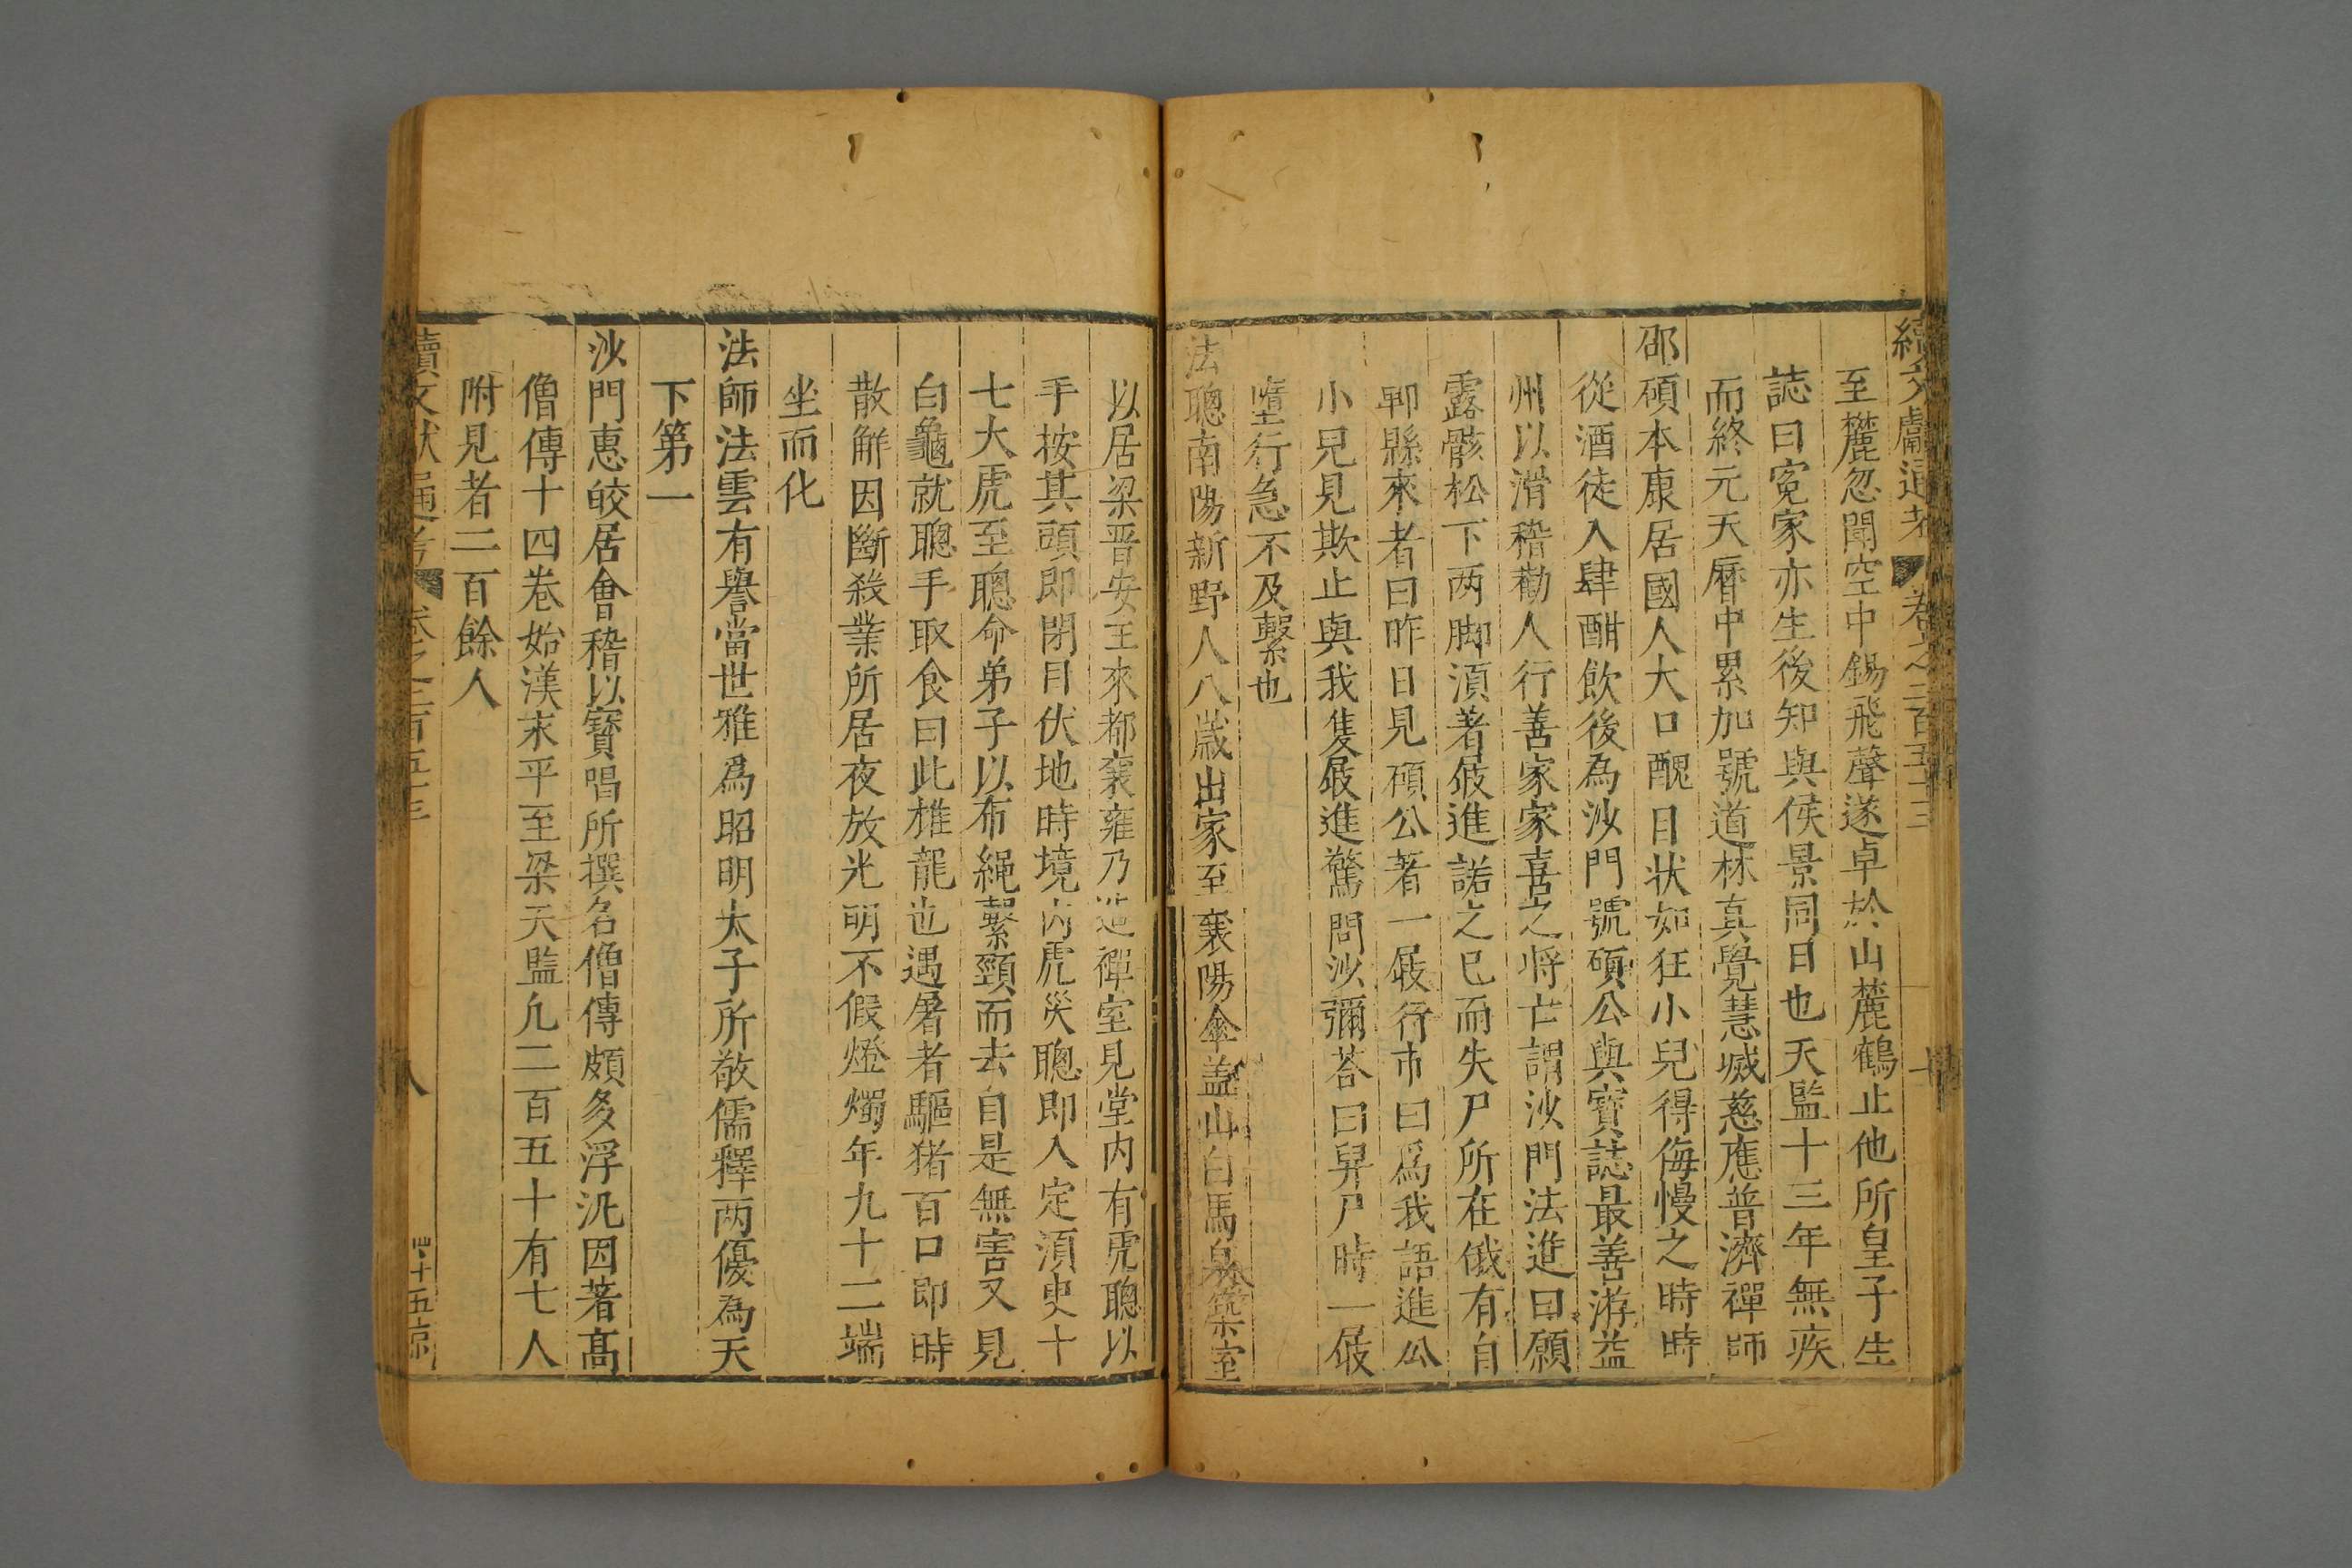 續文獻通考 卷之二百五十三
至麓忽聞空中錫飛聲遂卓於山麓鶴止他所皇子生
誌曰寃家亦生後知與侯景同日也天監十三年無疾
而終元天曆中累加號道林真覺慧感慈應普濟禪師
邵碩本康居國人大口醜目状如狂小兒得侮慢之時時
從酒徒入肆酣飲後為沙門號碩公與寶誌最善游益
州以滑稽勸人行善家家喜之将亡謂沙門法進曰願
露骸松下两脚湏著屐進諾之已而失尸所在俄有自
郫縣來者曰昨日見碩公著一屐行市曰爲我語進公
小兒見欺止與我隻屐進驚問沙彌荅曰舁尸時一屐
墮行急不及繫也
法聰南陽新野人八歳出家至襄陽傘盖山白馬泉築室
以居梁晋安王來都襄雍乃造禪室見堂内有虎聰以
手按其頭即閉目伏地時境内虎災聰即入定湏臾十
七大虎至聰命弟子以布繩繫頸而去自是無害又見
白龜就聰手取食曰此雄龍也遇屠者驅猪百口即時
散解因斷殺業所居夜放光明不假燈燭年九十二端
坐而化
法師法雲有譽當世雅爲昭明太子所敬儒釋两優為天
下第一
沙門惠皎居會稽以寶唱所撰名僧傳頗多浮沉因著髙
僧傳十四卷始漢末平至梁天監凢二百五十有七人
附見者二百餘人
續文献通考 卷之二百五十三 八